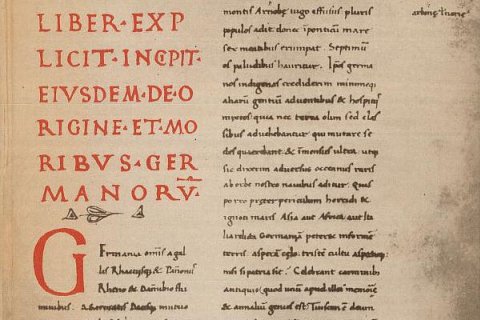 LIBER·EXP
LICIT·INCIPIT·
EIUSDEM·DE·O
RIGINE·ET·MO
RIBUS·GER
MANORV̄·
G
ermania omīs a gal
lis Rhaetisq; &
Rheno & Danubio flu
minibus. a mutuo
montis tugo effusus pluris
populos adit donec ī ponticū mare
sex meatibus erumpat. Septimū
os paludibus hauritur. Ip̄os germa
nos indigenas crediderim minimeq;
aliarū gentiū adventibus & hospitiis
mixtos quia nec terra olim sed clas
sibus advehebantur qui mutare se
des quaerebant & īmensus ultra. utq;
sic dixerim adversus oceanus raris
ab orbe nostro navibus aditur. quis
porro praeter periculum horridi &
ignoti maris. Asia aut Africa aut Ita
lia Germaniā peteret informem
terris. asperā caelo. tristē cultu
nisi si patria sit. Celebrant carminibus
antiquis, quod unū apud illos memoriae
& annaliū genus est. Tuistonem deum